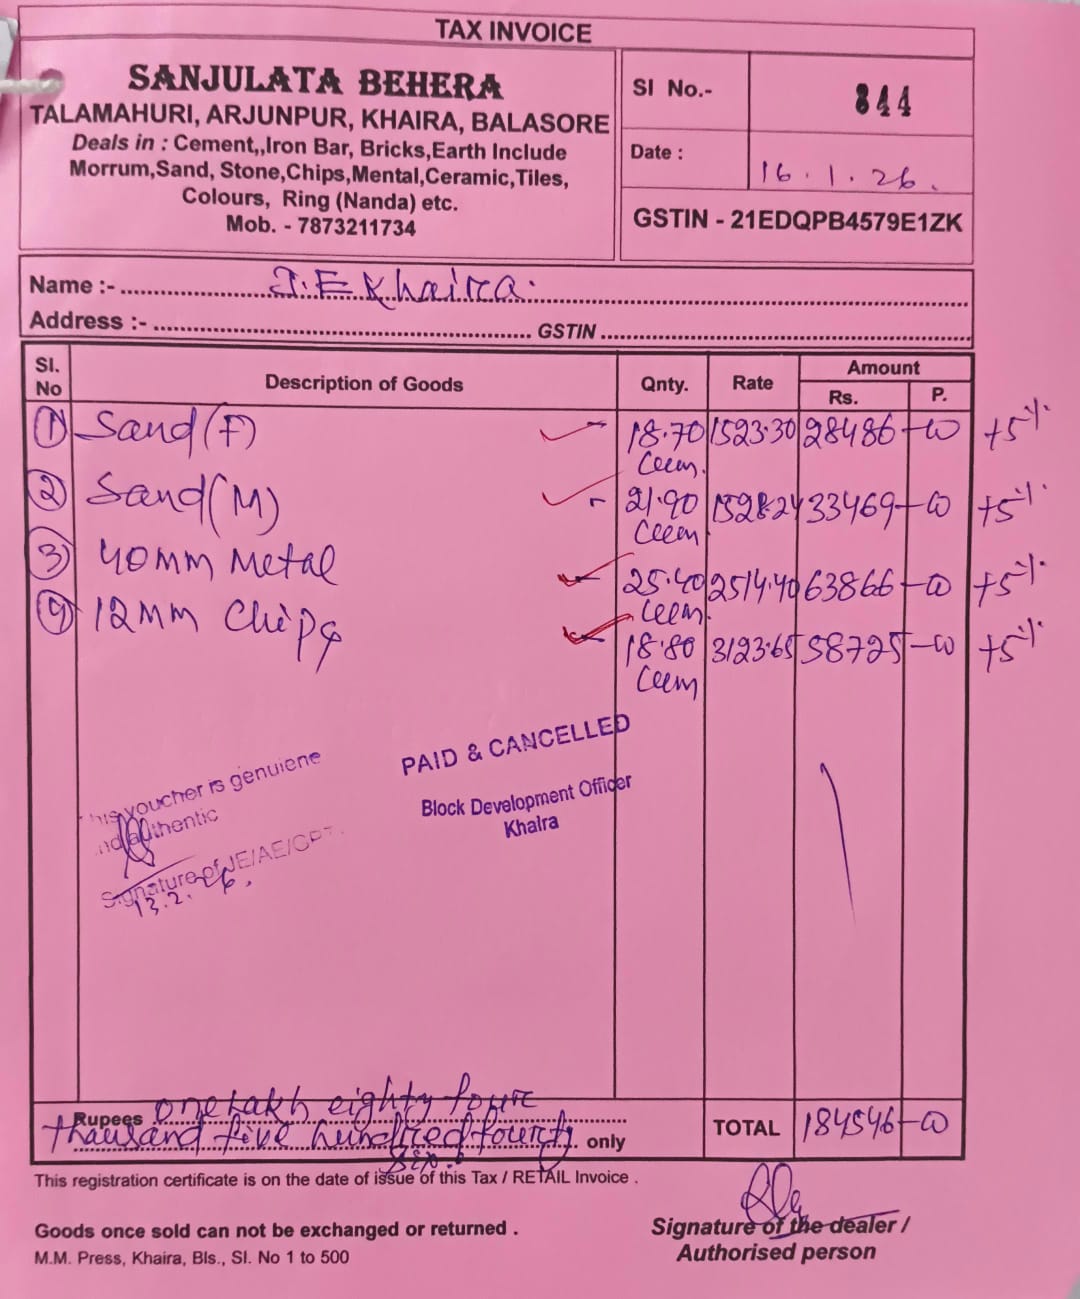 TAX INVOICE
SANJULATA BEHERA
TALAMAHURI, ARJUNPUR, KHAIRA, BALASORE
Deals in : Cement,,Iron Bar, Bricks,Earth Include
Morrum,Sand, Stone,Chips,Mental,Ceramic,Tiles,
Colours, Ring (Nanda) etc.
Mob. - 7873211734
SI No.- 844
Date : 16.1.26.
GSTIN - 21EDQPB4579E1ZK
Name :- J.E Khaira.
Address :- GSTIN
SI. No Description of Goods Qnty. Rate Amount Rs. P.
1 Sand (F) 18.70 Cum. 1523.30 28486-00 +5%
2 Sand (M) 21.90 Cum 1528.24 33469-00 +5%
3 40mm Metal 25.40 Cum. 2514.40 63866-00 +5%
4 12mm Chips 18.80 Cum 3123.65 58725-00 +5%
PAID & CANCELLED
Block Development Officer
Khaira
This voucher is genuiene
and authentic
Signature of JE/AE/GPT.
13.2.26.
Rupees one Lakh eighty four
thausand five hundred fourty six. only
TOTAL 184546-00
This registration certificate is on the date of issue of this Tax / RETAIL Invoice .
Goods once sold can not be exchanged or returned .
M.M. Press, Khaira, Bls., SI. No 1 to 500
Signature of the dealer /
Authorised person